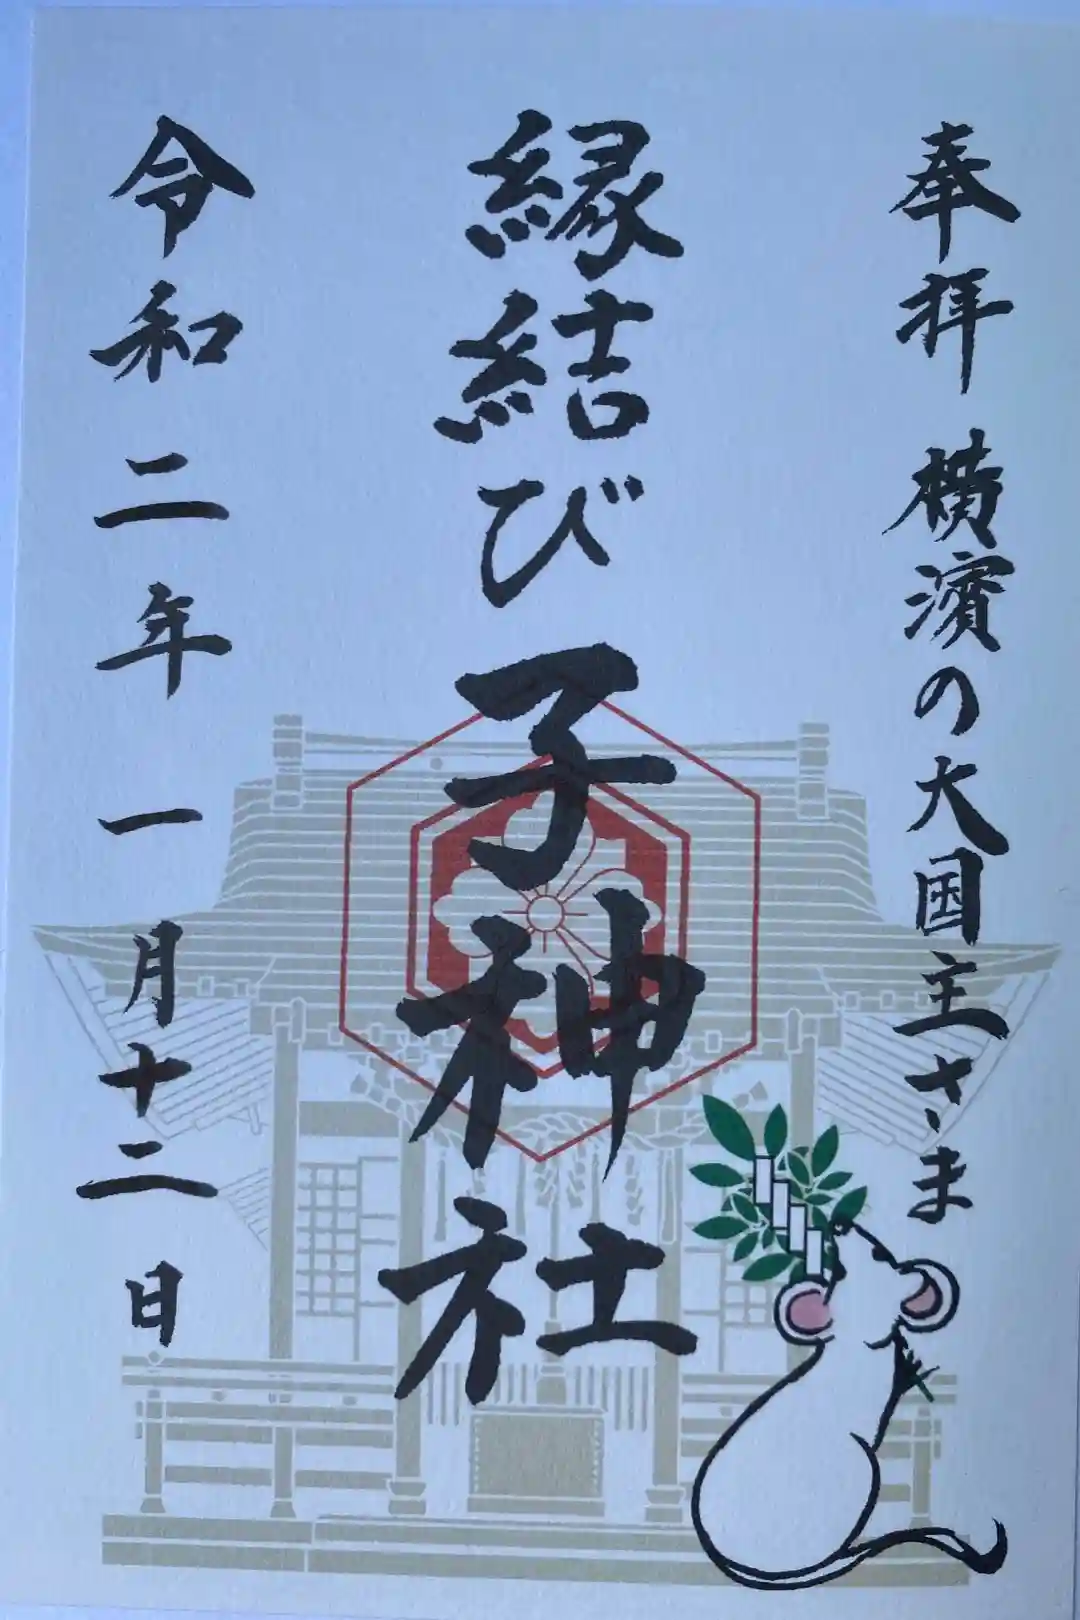 奉拝 横濱の大国主さま
縁結び 子神社
令和二年 一月十二日